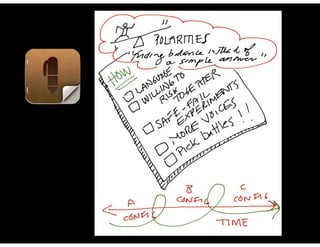 "
POLARITIES
"finding balance instead of
a simple answer"
HOW
LANGUAGE
WILLING TO
RISK TOGETHER
SAFE-FAIL
EXPERIMENTS
MORE VOICES
Pick battles!!
A
CONFIG
B
CONFIG
C
CONFIG
TIME